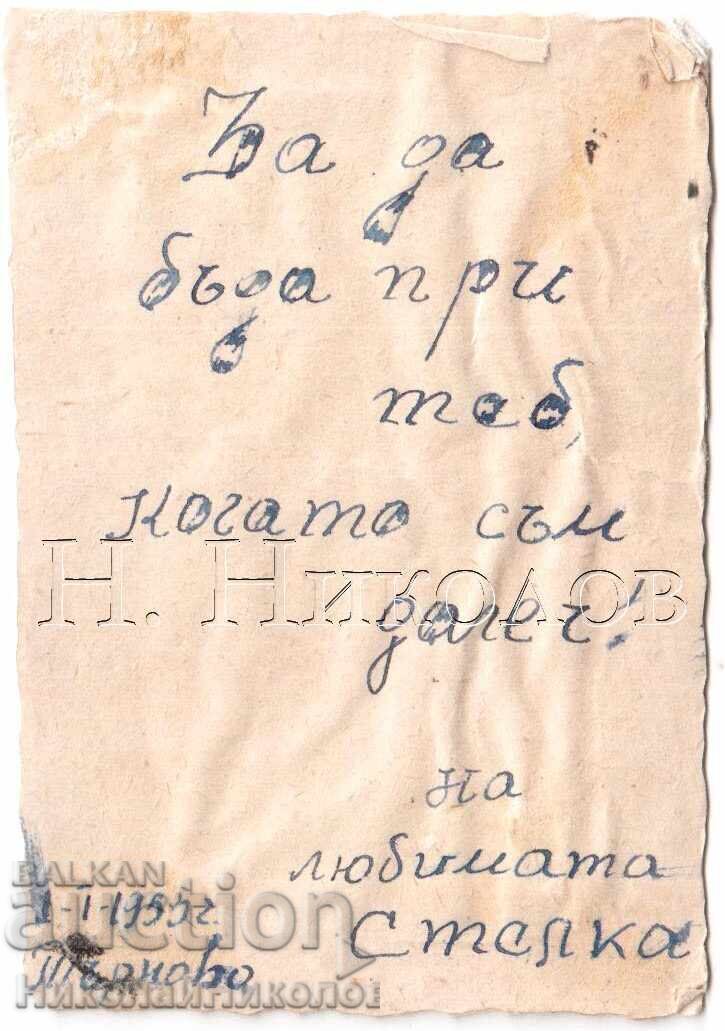 За да
бъда при
теб,
когато съм
Н. Николов
далеч!
на
любимата
Стелка
BALKAN
auction
1-I-1955г.
Търново
НиколайНиколов